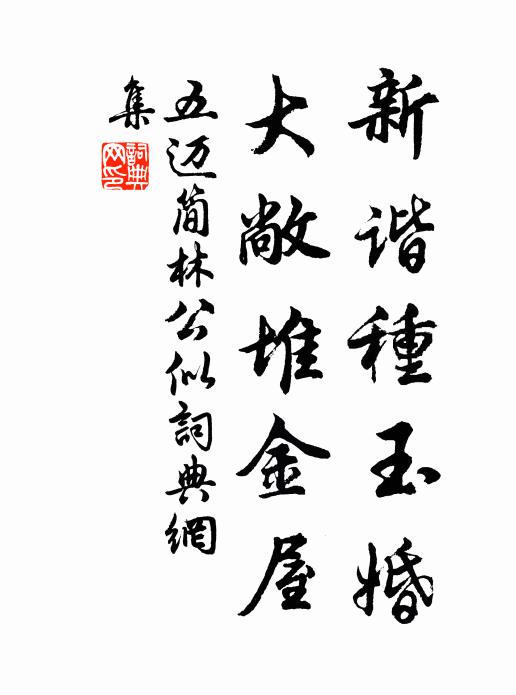 新谐種玉婚
大敞堆金屋
五迈简林公似詞典網
集
詞典網印